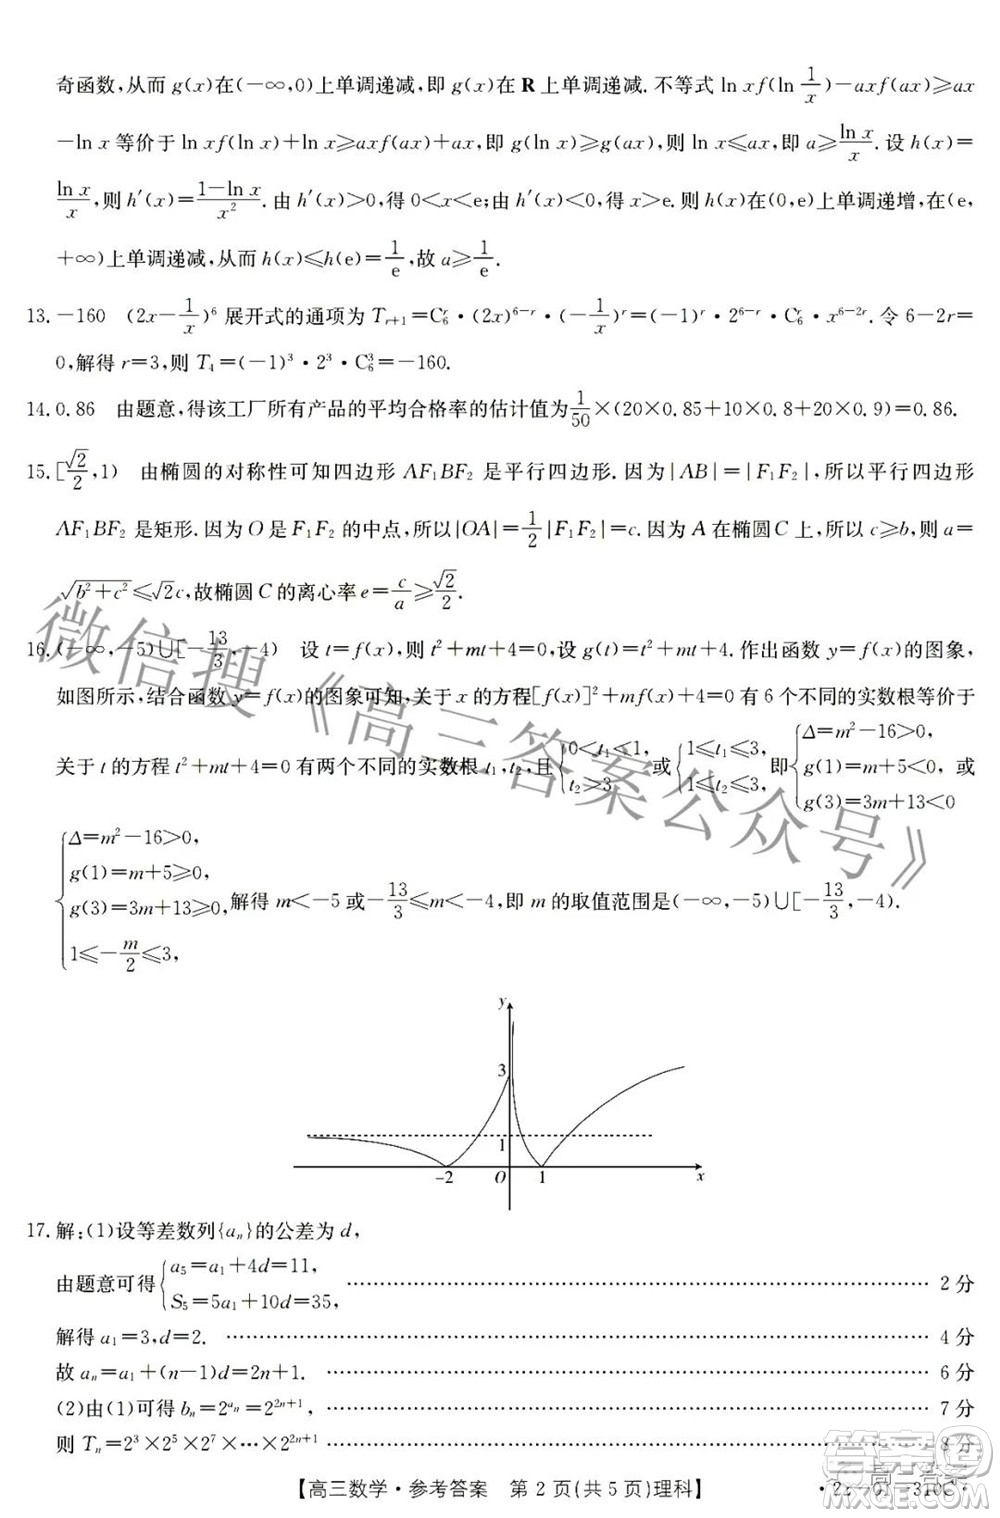 奇函数,从而 g(x)在(-∞,0)上单调递减,即 g(x)在 R 上单调递减.不等式 ln xf(ln 1/x)-axf(ax)≥ax
-ln x 等价于 ln xf(ln x)+ln x≥axf(ax)+ax,即 g(ln x)≥g(ax),则 ln x≤ax,即 a≥ln x/x.设 h(x)=
ln x/x,则 h′(x)=(1-ln x)/x².由 h′(x)>0,得 0<x<e;由 h′(x)<0,得 x>e.则 h(x)在(0,e)上单调递增,在(e,
+∞)上单调递减,所以 h(x)≤h(e)=1/e,故 a≥1/e.
13.-160 (2x-1/x)⁶ 展开式的通项为 Tᵣ₊₁=C₆ʳ·(2x)⁶⁻ʳ·(-1/x)ʳ=(-1)ʳ·2⁶⁻ʳ·C₆ʳ·x⁶⁻²ʳ.令 6-2r=
0,解得 r=3,则 T₄=(-1)³·2³·C₆³=-160.
14.0.86 由题意,得该工厂所有产品的平均合格率的估计值为1/50×(20×0.85+10×0.8+20×0.9)=0.86.
15.[√2/2,1) 由椭圆的对称性可知四边形 AF₁BF₂ 是平行四边形.因为|AB|=|F₁F₂|,所以平行四边形
AF₁BF₂ 是矩形.因为 O 是 F₁F₂ 的中点,所以|OA|=1/2|F₁F₂|=c.因为 A 在椭圆 C 上,所以 c≥b,则 a=
√(b²+c²)≤√2c,故椭圆 C 的离心率 e=c/a≥√2/2.
16.(-∞,-5)∪[-13/3,-4) 设 t=f(x),则 t²+mt+4=0.设 g(t)=t²+mt+4.作出函数 y=f(x)的图象,
如图所示,结合函数 y=f(x)的图象可知,关于 x 的方程[f(x)]²+mf(x)+4=0 有 6 个不同的实数根等价于
关于 t 的方程 t²+mt+4=0 有两个不同的实数根 t₁,t₂,且{0<t₁≤1, t₂≥3 或{1≤t₁≤3, 1≤t₂≤3, 即{Δ=m²-16>0, g(1)=m+5≤0, g(3)=3m+13<0 或
{Δ=m²-16>0, g(1)=m+5≥0, g(3)=3m+13≥0, 1≤-m/2≤3, 解得 m<-5 或-13/3≤m<-4,即 m 的取值范围是(-∞,-5)∪[-13/3,-4).
y
3
1
-2 O 1 x
17.解:(1)设等差数列{aₙ}的公差为 d,
由题意可得{a₅=a₁+4d=11, S₅=5a₁+10d=35, ………… 2 分
解得 a₁=3,d=2. ………… 4 分
故 aₙ=a₁+(n-1)d=2n+1. ………… 6 分
(2)由(1)可得 bₙ=2^(aₙ)=2²ⁿ⁺¹, ………… 7 分
则 Tₙ=2³×2⁵×2⁷×…×2²ⁿ⁺¹ ………… 8 分
【高三数学·参考答案 第 2 页(共 5 页)理科】
·22-01-310C·
微信搜《高三答案公众号》
答案圈
MXQE.COM